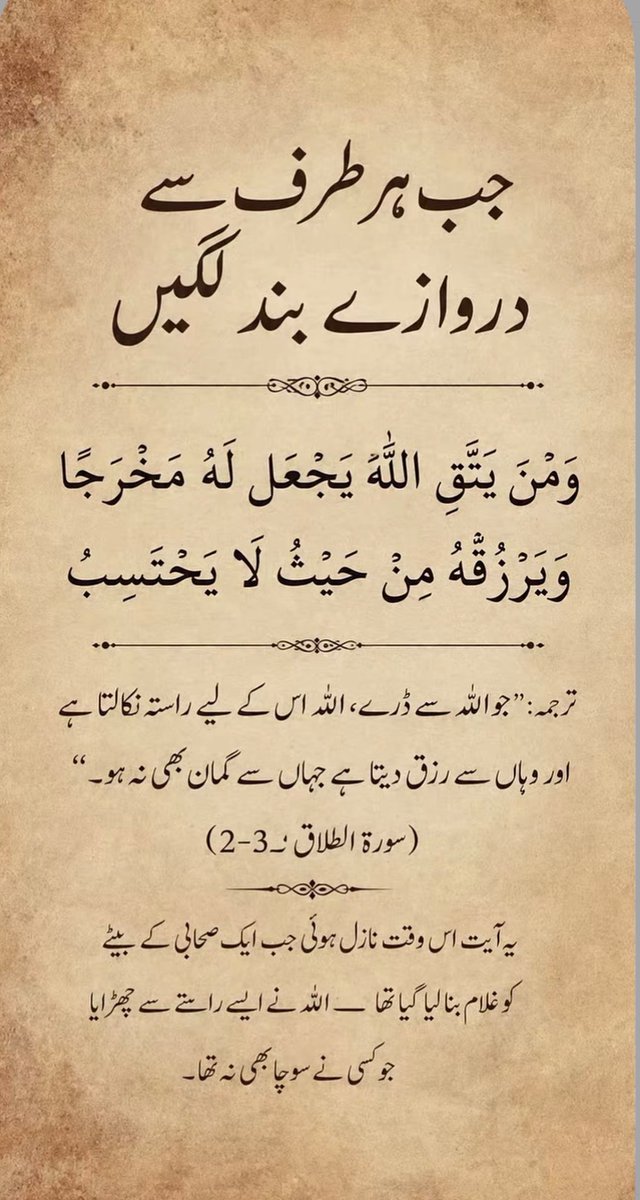 جب ہر طرف سے
دروازے بند لگیں
وَمَنْ يَتَّقِ اللَّهَ يَجْعَل لَهُ مَخْرَجًا
وَيَرْزُقْهُ مِنْ حَيْثُ لَا يَحْتَسِبُ
ترجمہ: ”جو اللہ سے ڈرے، اللہ اس کے لیے راستہ نکالتا ہے
اور وہاں سے رزق دیتا ہے جہاں سے گمان بھی نہ ہو۔“
(سورۃ الطلاق 2-3)
یہ آیت اس وقت نازل ہوئی جب ایک صحابی کے بیٹے
کو غلام بنا لیا گیا تھا — اللہ نے ایسے راستے سے چھڑایا
جو کسی نے سوچا بھی نہ تھا۔